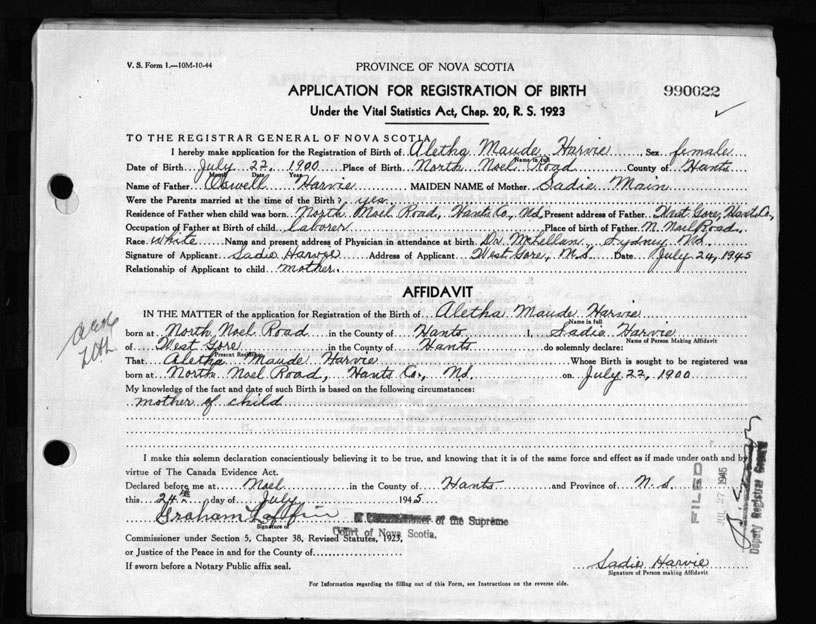 V. S. Form 1.—10M-10-44
PROVINCE OF NOVA SCOTIA
APPLICATION FOR REGISTRATION OF BIRTH
990622
Under the Vital Statistics Act, Chap. 20, R. S. 1923
TO THE REGISTRAR GENERAL OF NOVA SCOTIA
I hereby make application for the Registration of Birth of Aletha Maude Harvie, Sex female
Name in full
Date of Birth July 22, 1900 Place of Birth North Noel Road County of Hants
Month Date Year
Name of Father Harvie MAIDEN NAME of Mother Sadie Main
Were the Parents married at the time of the Birth? yes
Residence of Father when child was born North Noel Road, Hants Co, Nd, Present address of Father West Gore, Hants Co,
Occupation of Father at Birth of child laborer Place of birth of Father N. Noel Road.
Race White Name and present address of Physician in attendance at birth Dr McLellan, Sydney Nd.
Signature of Applicant Sadie Harvie Address of Applicant West Gore, N.S Date July 24, 1945
Relationship of Applicant to child mother.
AFFIDAVIT
IN THE MATTER of the application for Registration of the Birth of Aletha Maude Harvie
Name in full
born at North Noel Road in the County of Hants I, Sadie Harvie
Name of Person Making Affidavit
of West Gore in the County of Hants do solemnly declare:
Present Residence
That Aletha Maude Harvie Whose Birth is sought to be registered was
born at North Noel Road, Hants Co, Nd. on July 22, 1900
My knowledge of the fact and date of such Birth is based on the following circumstances:
mother of child
I make this solemn declaration conscientiously believing it to be true, and knowing that it is of the same force and effect as if made under oath and by
virtue of The Canada Evidence Act.
Declared before me at Noel in the County of Hants and Province of N. S.
this 24th day of July 1945
Graham Laffin
Signature of
A Commissioner of the Supreme
Court of Nova Scotia.
Commissioner under Section 5, Chapter 38, Revised Statutes, 1923,
or Justice of the Peace in and for the County of
If sworn before a Notary Public affix seal.
Sadie Harvie
Signature of Person making Affidavit
For Information regarding the filling out of this Form, see Instructions on the reverse side.
FILED
JUL 27 1945
Deputy Registrar General